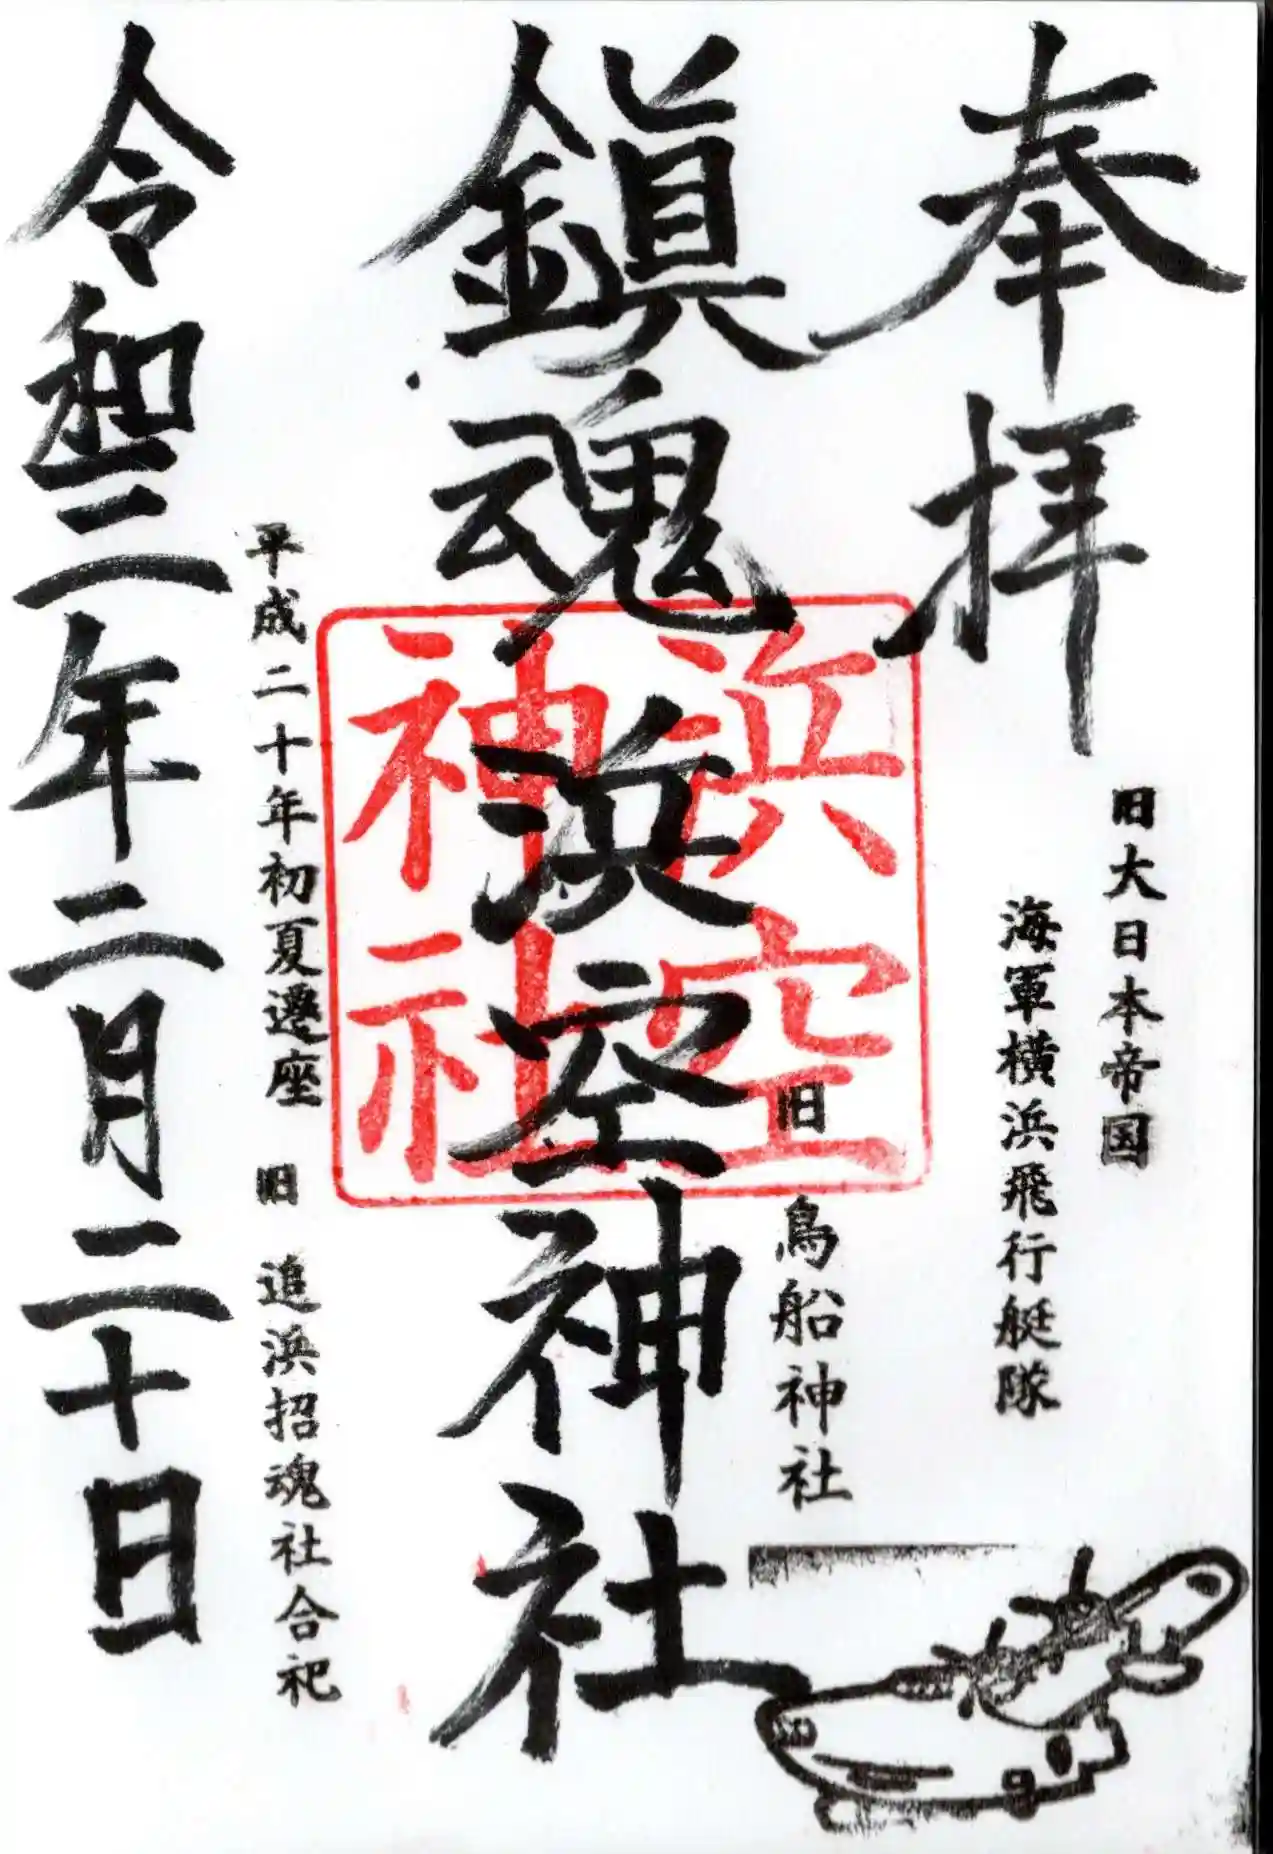 奉拝
旧大日本帝国
海軍横浜飛行艇隊
旧 鳥船神社
鎭魂 浜空神社
浜空
神社
平成二十年初夏遷座 旧 追浜招魂社合祀
令和二年二月二十日